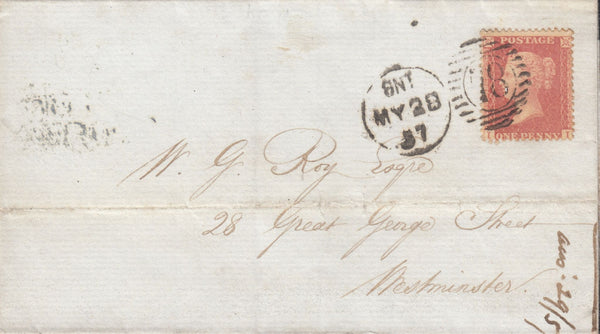 POSTAGE
ONE PENNY
18
8NT
MY 28
57
W. G. Roy Esqre
28 Great George Street
Westminster.
ans: 29/5